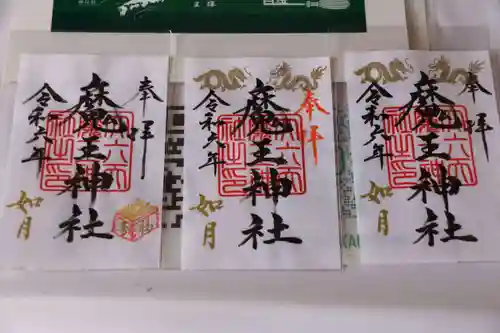 奉拝
魔王神社
令和六年
如月
奉拝
魔王神社
令和六年
如月
奉拝
魔王神社
令和六年
如月